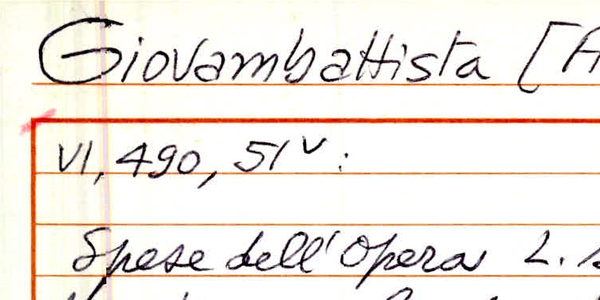 Giovambattista [
VI, 490, 51v:
Spese dell'Opera L.